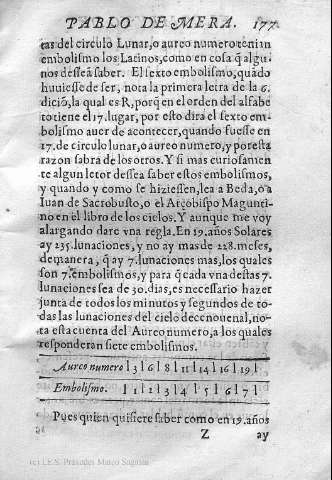 PABLO DE MERA. 177.
tas del circulo Lunar, o aureo numero tenian
embolismo los Latinos, como en cosa q̃ algu-
nos dessẽa saber. El sexto embolismo, quãdo
huuiesse de ser, nota la primera letra de la 6.
dició, la qual es R, porq̃ en el orden del alfabe
to tiene el 17. lugar, por esto dira el sexto em-
bolismo auer de acontecer, quando fuesse en
17. de circulo lunar, o aureo numero, y por esta
razon sabra de los otros. Y si mas curiosamen
te algun letor dessea saber estos embolismos,
y quando y como se hiziessen, lea a Beda, o a
Iuan de Sacrobusto, o el Arçobispo Maguntì
no en el libro de los cielos. Y aunque me voy
alargando dare vna regla. En 19. años Solares
ay 235. lunaciones, y no ay mas de 228. meses,
de manera, q̃ ay 7. lunaciones mas, los quales
son 7. embolismos, y para q̃ cada vna destas 7.
lunaciones sea de 30. dias, es necessario hazer
junta de todos los minutos y segundos de to-
das las lunaciones del ciclo decenouenal, no-
ta esta cuenta del Aureo numero, a los quales
responderan siete embolismos.
Aureo numero | 3 | 6 | 8 | 11 | 14 | 16 | 19 |
Embolismo. | 1 | 2 | 3 | 4 | 5 | 6 | 7 |
Pues quien quisiere saber como en 19. años
Z ay
(c) I.E.S. Práxedes Mateo Sagasta